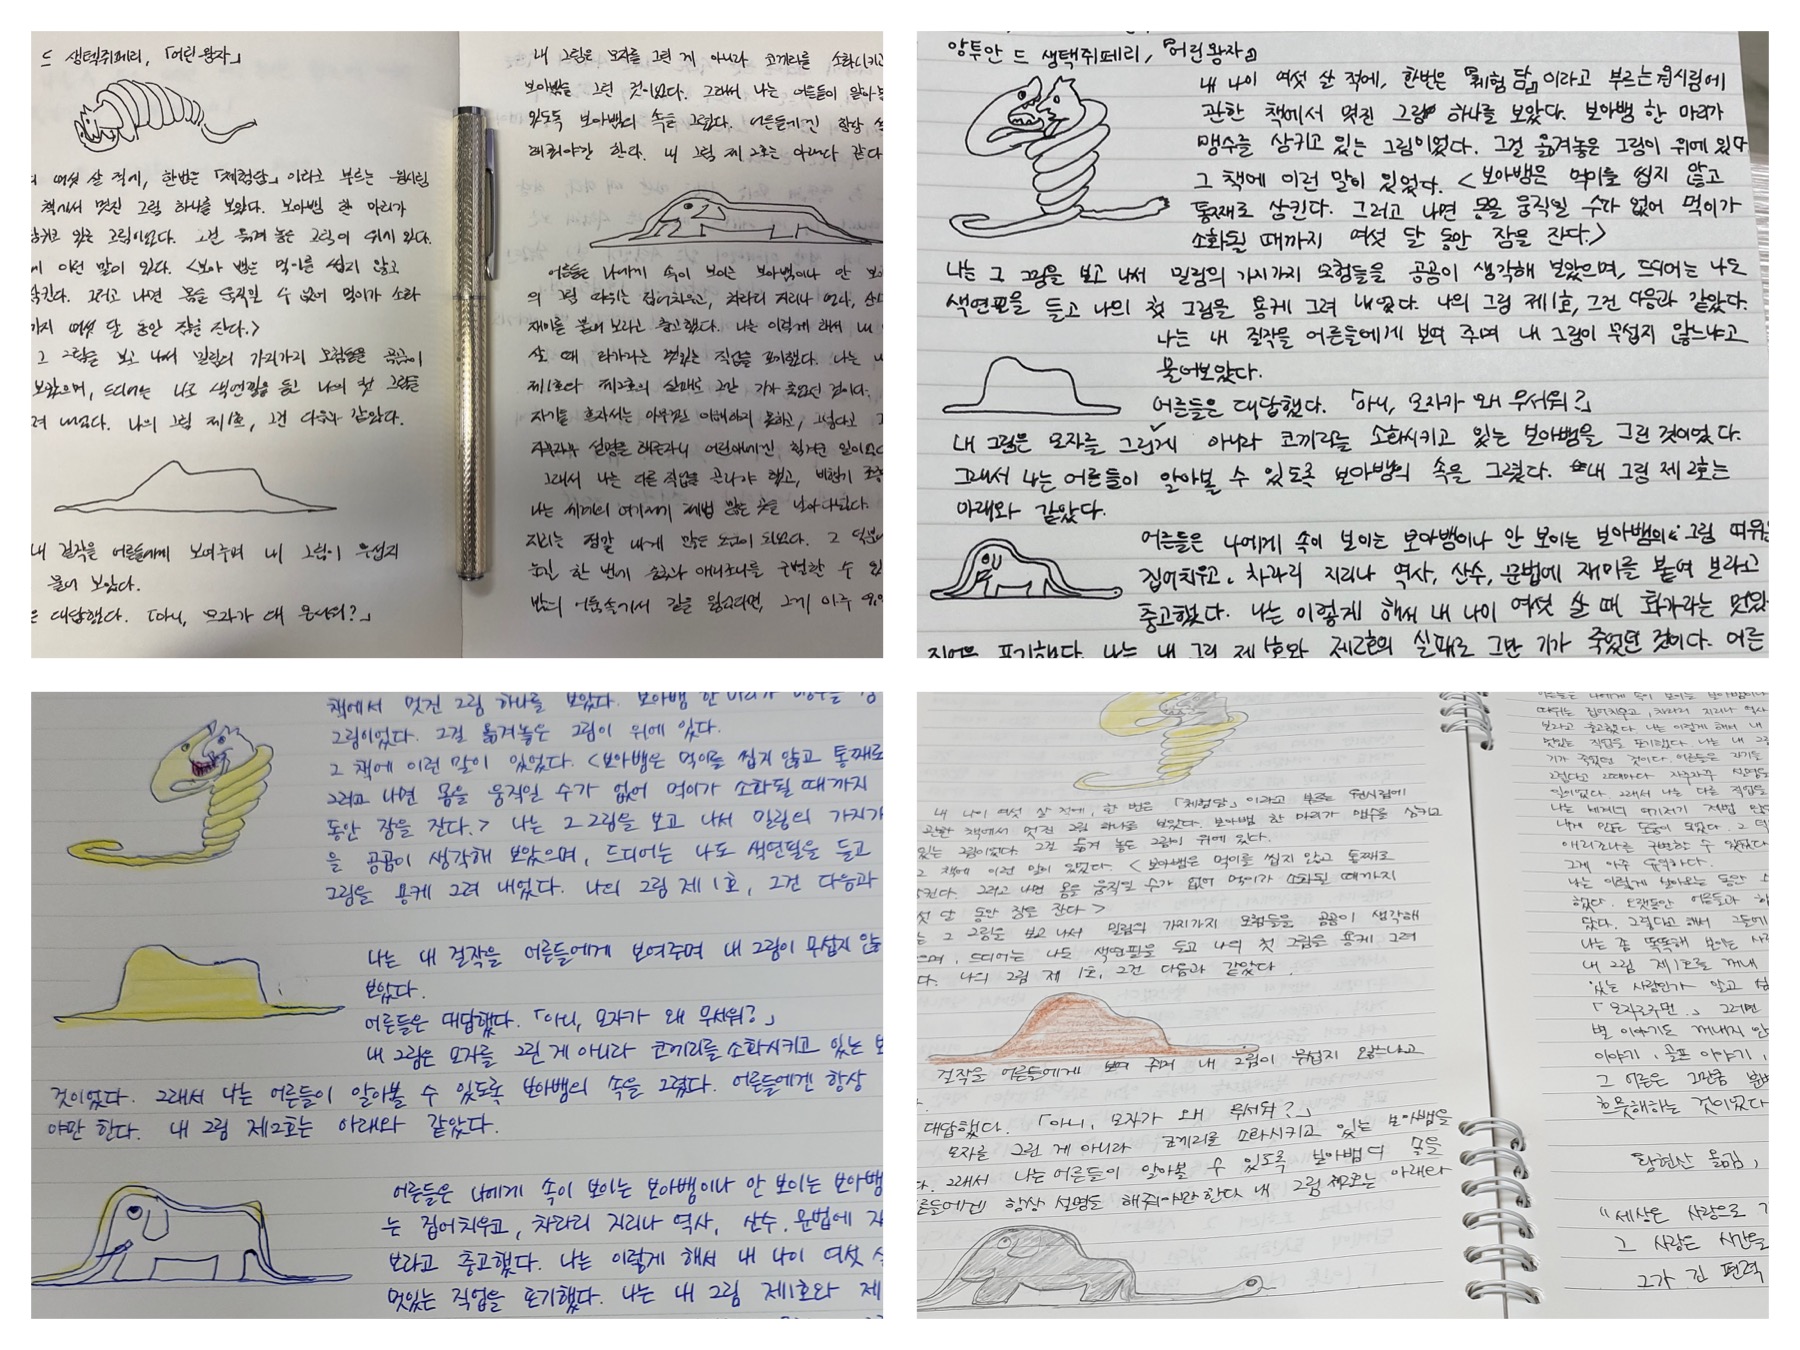 드 생텍쥐페리, 「어린 왕자」
여섯 살 적에, 한번은 「체험담」이라고 부르는 원시림
책에서 멋진 그림 하나를 보았다. 보아뱀 한 마리가
있는 그림이었다. 그걸 옮겨 놓은 그림이 위에 있다.
이런 말이 있다. <보아 뱀은 먹이를 씹지 않고
삼킨다. 그러고 나면 몸을 움직일 수 없어 먹이가 소화
까지 여섯 달 동안 잠을 잔다.>
그 그림을 보고 나서 밀림의 가지가지 모험들을 곰곰이
보았으며, 드디어는 나도 색연필을 들고 나의 첫 그림을
그려 내었다. 나의 그림 제1호, 그건 다음과 같았다.
내 걸작을 어른들에게 보여주며 내 그림이 무섭지
물어 보았다.
대답했다. 「아니, 모자가 왜 무서워?」
내 그림은 모자를 그린 게 아니라 코끼리를 소화시키고
보아뱀을 그린 것이었다. 그래서 나는 어른들이 알아볼
있도록 보아뱀의 속을 그렸다. 어른들에겐 항상
해줘야만 한다. 내 그림 제2호는 아래와 같다
어른들은 나에게 속이 보이는 보아뱀이나 안 보
의 그림 따위는 집어치우고, 차라리 지리나 역사, 산수
재미를 붙여 보라고 충고했다. 나는 이렇게 해서 내
살 때 화가라는 멋있는 직업을 포기했다. 나는 내
제1호와 제2호의 실패로 그만 기가 죽었던 것이다.
자기들 혼자서는 아무것도 이해하지 못하고, 그렇다고
자꾸자꾸 설명을 해주자니 어린애에겐 힘겨운 일이었다
그래서 나는 다른 직업을 골라야 했고, 비행기 조종
나는 세계의 여기저기 제법 많은 곳을 날아다녔다.
지리는 정말 내게 많은 도움이 되었다. 그 덕분에
눈길 한 번에 중국과 애리조나를 구별할 수 있
밤의 어둠속에서 길을 잃으면, 그게 아주 유익
앙투안 드 생택쥐페리, 『어린왕자』
내 나이 여섯 살 적에, 한번은 『체험담』이라고 부르는 원시림에
관한 책에서 멋진 그림 하나를 보았다. 보아뱀 한 마리가
맹수를 삼키고 있는 그림이었다. 그걸 옮겨놓은 그림이 위에 있다
그 책에 이런 말이 있었다. <보아뱀은 먹이를 씹지 않고
통째로 삼킨다. 그러고 나면 몸을 움직일 수가 없어 먹이가
소화될 때까지 여섯 달 동안 잠을 잔다.>
나는 그 그림을 보고 나서 밀림의 가지가지 모험들을 곰곰이 생각해 보았으며, 드디어는 나도
색연필을 들고 나의 첫 그림을 용케 그려 내었다. 나의 그림 제1호, 그건 다음과 같았다.
나는 내 걸작을 어른들에게 보여 주며 내 그림이 무섭지 않느냐고
물어보았다.
어른들은 대답했다. 「아니, 모자가 왜 무서워?」
내 그림은 모자를 그린게 아니라 코끼리를 소화시키고 있는 보아뱀을 그린 것이었다.
그래서 나는 어른들이 알아볼 수 있도록 보아뱀의 속을 그렸다. 내 그림 제2호는
아래와 같았다.
어른들은 나에게 속이 보이는 보아뱀이나 안 보이는 보아뱀의 그림 따위는
집어치우고, 차라리 지리나 역사, 산수, 문법에 재미를 붙여 보라고
충고했다. 나는 이렇게 해서 내 나이 여섯 살 때 화가라는 멋있
직업을 포기했다. 나는 내 그림 제1호와 제2호의 실패로 그만 기가 죽었던 것이다. 어른
책에서 멋진 그림 하나를 보았다. 보아뱀 한 마리가 맹수를 삼
그림이었다. 그걸 옮겨놓은 그림이 위에 있다.
그 책에 이런 말이 있었다. <보아뱀은 먹이를 씹지 않고 통째로
그러고 나면 몸을 움직일 수가 없어 먹이가 소화될 때까지
동안 잠을 잔다.> 나는 그 그림을 보고 나서 밀림의 가지가
을 곰곰이 생각해 보았으며, 드디어는 나도 색연필을 들고
그림을 용케 그려 내었다. 나의 그림 제1호, 그건 다음과
나는 내 걸작을 어른들에게 보여주며 내 그림이 무섭지 않
보았다.
어른들은 대답했다. 「아니, 모자가 왜 무서워?」
내 그림은 모자를 그린 게 아니라 코끼리를 소화시키고 있는 보
것이었다. 그래서 나는 어른들이 알아볼 수 있도록 보아뱀의 속을 그렸다. 어른들에겐 항상
야만 한다. 내 그림 제2호는 아래와 같았다.
어른들은 나에게 속이 보이는 보아뱀이나 안 보이는 보아뱀
는 집어치우고, 차라리 지리나 역사, 산수, 문법에 재
보라고 충고했다. 나는 이렇게 해서 내 나이 여섯 살
멋있는 직업을 포기했다. 나는 내 그림 제1호와 제
내 나이 여섯 살 적에, 한 번은 「체험담」이라고 부르는 원시림에
관한 책에서 멋진 그림 하나를 보았다. 보아뱀 한 마리가 맹수를 삼키고
있는 그림이었다. 그걸 옮겨 놓은 그림이 위에 있다.
그 책에 이런 말이 있었다. <보아뱀은 먹이를 씹지 않고 통째로
삼킨다. 그러고 나면 몸을 움직일 수가 없어 먹이가 소화될 때까지
여섯 달 동안 잠을 잔다>
는 그 그림을 보고 나서 밀림의 가지가지 모험들을 곰곰이 생각해
으며, 드디어는 나도 색연필을 들고 나의 첫 그림을 용케 그려
다. 나의 그림 제 1호, 그건 다음과 같았다.
걸작을 어른들에게 보여 주며 내 그림이 무섭지 않느냐고
대답했다. 「아니, 모자가 왜 무서워?」
모자를 그린 게 아니라 코끼리를 소화시키고 있는 보아뱀을
다. 그래서 나는 어른들이 알아볼 수 있도록 보아뱀의 속을
른들에겐 항상 설명을 해줘야만 한다 내 그림 제2호는 아래와
따위는 집어치우고, 차라리 지리나 역사
보라고 충고했다. 나는 이렇게 해서 내
멋있는 직업을 포기했다. 나는 내 그림
기가 죽었던 것이다. 어른들은 자기들
그렇다고 그때마다 자꾸자꾸 설명을
일이었다. 그래서 나는 다른 직업을
나는 세계의 여기저기 제법 많
내게 많은 도움이 되었다. 그 덕
애리조나를 구별할 수 있었다
그게 아주 유익하다.
나는 이렇게 살아오는 동안
했다. 오랫동안 어른들과 함
았다. 그렇다고 해서 그들에
나는 좀 똑똑해 보이는 사람
내 그림 제1호를 꺼내
있는 사람인가 알고 싶
「모자로구먼.」 그러면
별 이야기도 꺼내지 않
이야기, 골프 이야기,
그 어른은 그만큼 분별
흐뭇해하는 것이었다
황현산 옮김,
“세상은 사랑으로
그 사랑은 시간을
그가 긴 편력